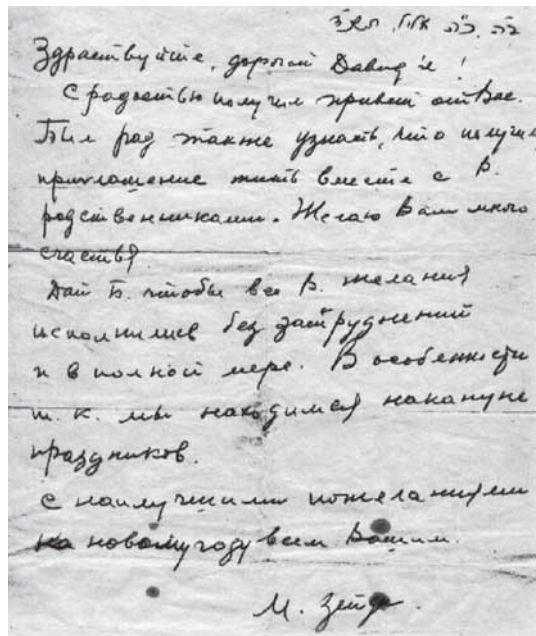 ב"ה. כ"ה אלול.
Здравствуйте, дорогой Давид'л!
С радостью получил привет от Вас.
Был рад также узнать, что получи
приглашение жить вместе с В.
родственниками. Желаю Вам много
счастья
Дай Б. чтобы все В. желания
исполнились без затруднений
и в полной мере. В особенности
т. к. мы находимся накануне
праздников.
С наилучшими пожеланиями
новому году всем Вашим.
М. Зейд